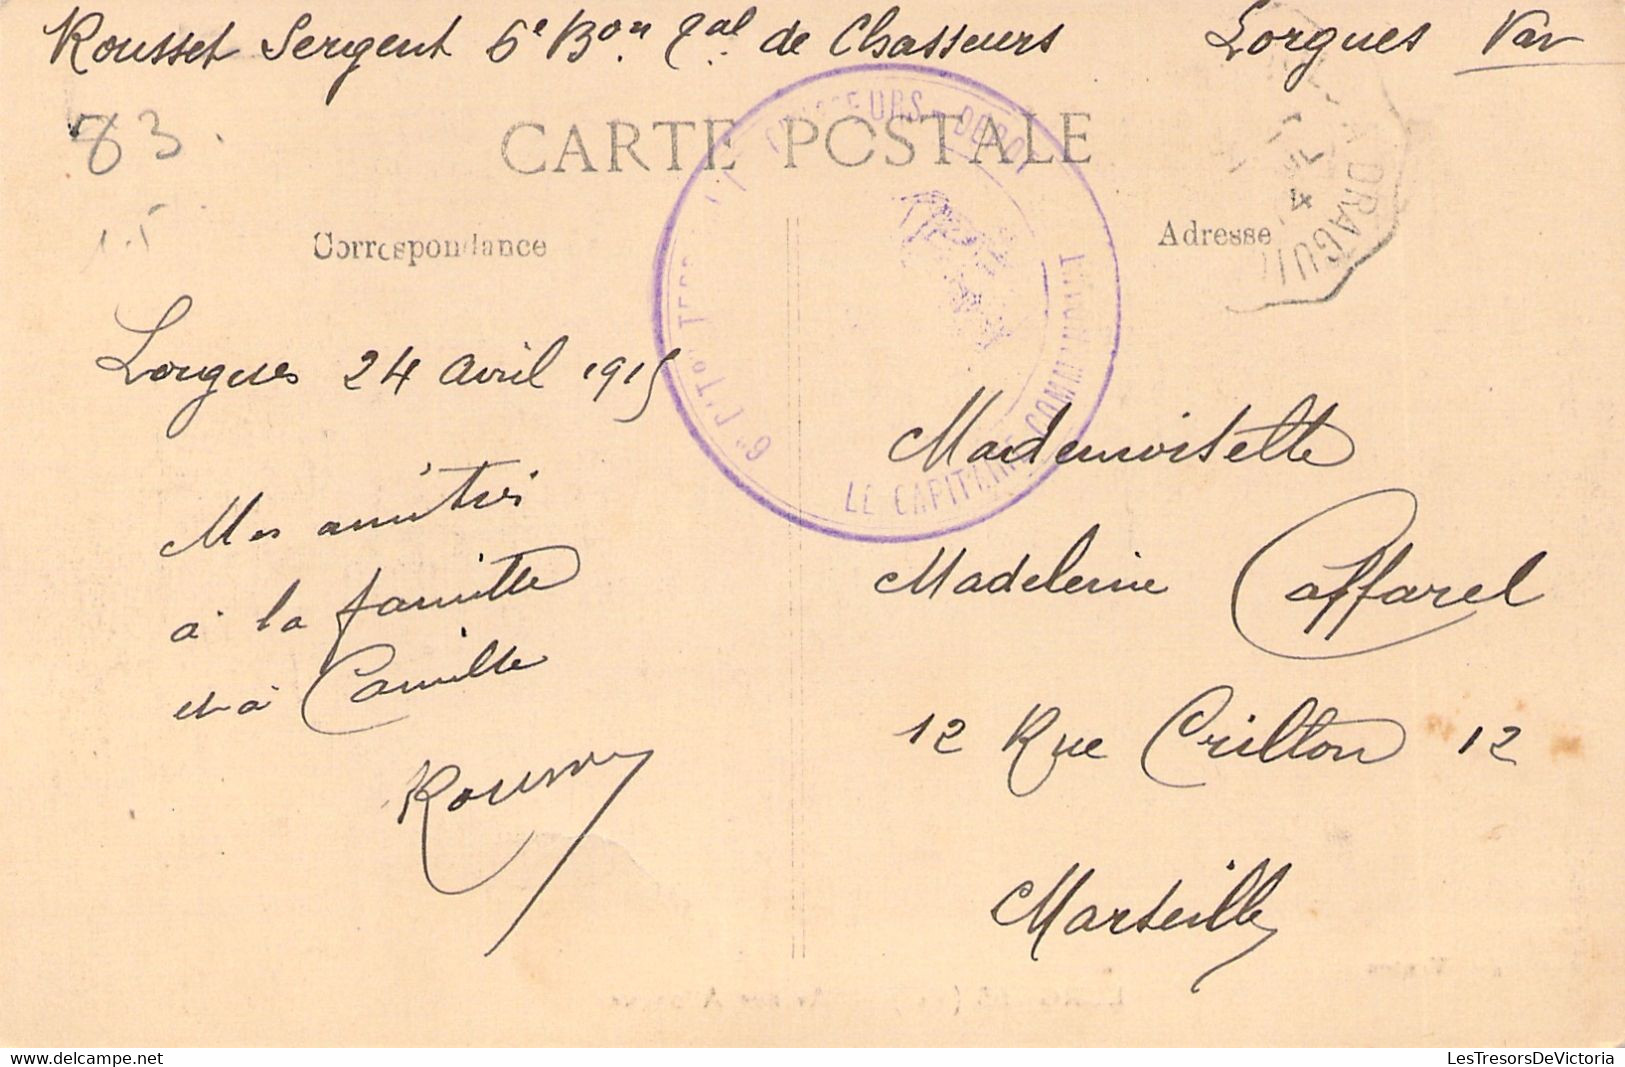 Rousset Sergent 6e Bon Tal de Chasseurs Lorgues Var
83.
CARTE POSTALE
Correspondance
Adresse
DRAGUI
6e Bon CHASSEURS - DEPOT
LE CAPITAINE COMMANDANT
Lorgues 24 avril 1915
Mes amitiés
à la famille
et à Camille
Rousset
Mademoiselle
Madeleine Caffarel
12 Rue Crillon 12
Marseille
LesTresorsDeVictoria